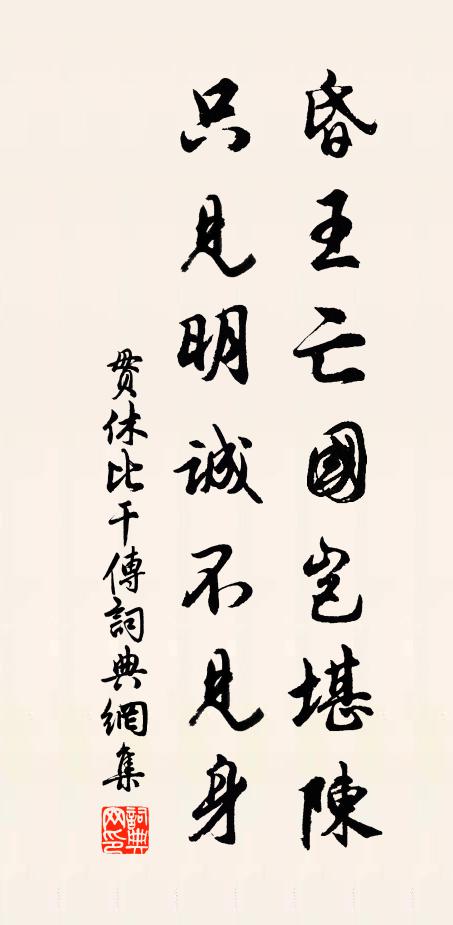 昏王亡國豈堪陳
只見明誠不見身
貫休比干傳詞典網集
詞典網印